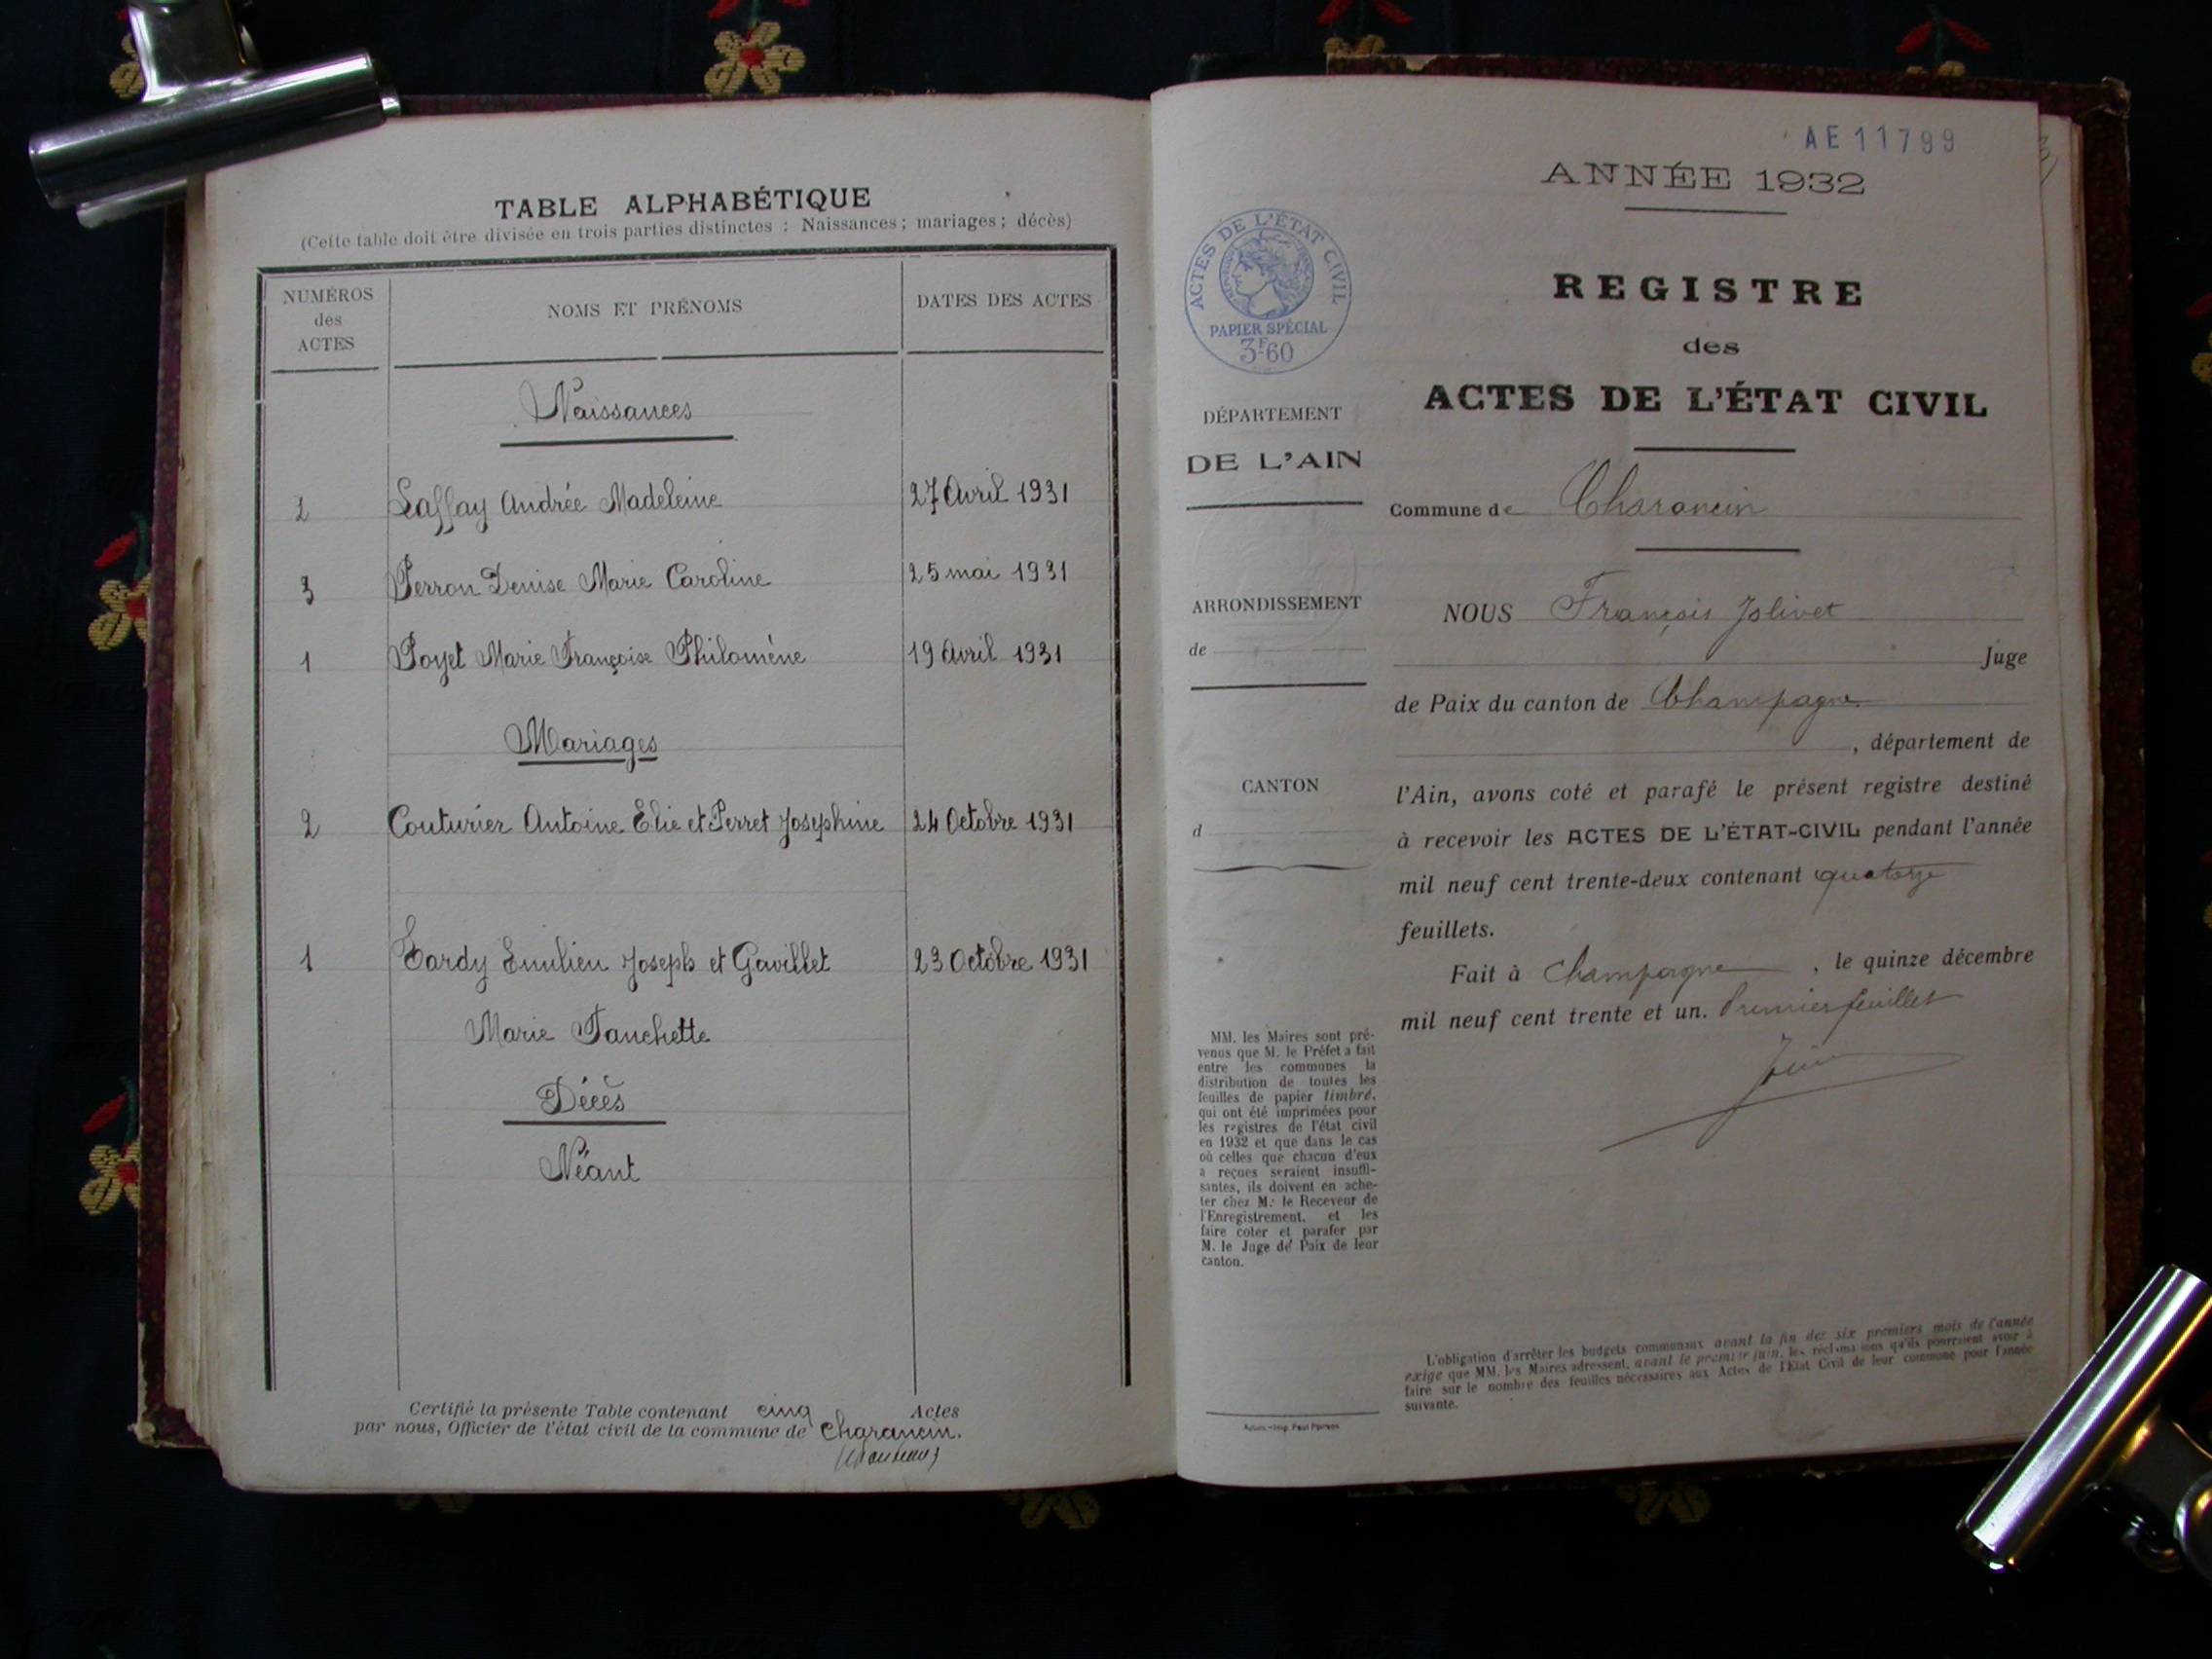 TABLE ALPHABÉTIQUE
(Cette table doit être divisée en trois parties distinctes : Naissances ; mariages ; décès)
NUMÉROS
des
ACTES
NOMS ET PRÉNOMS
DATES DES ACTES
Naissances
2 Laffay Andrée Madeleine 27 Avril 1931
3 Perron Denise Marie Caroline 25 mai 1931
1 Poyet Marie Françoise Philomène 19 Avril 1931
Mariages
2 Couturier Antoine Elie et Perret Josephine 24 Octobre 1931
1 Tardy Emilien Joseph et Gavillet 23 Octobre 1931
Marie Fanchette
Décès
Néant
Certifié la présente Table contenant cinq Actes
par nous, Officier de l'état civil de la commune de Charancin.
AE 11799
ANNÉE 1932
ACTES DE L'ÉTAT CIVIL
PAPIER SPÉCIAL
3F60
REGISTRE
des
ACTES DE L'ÉTAT CIVIL
DÉPARTEMENT
DE L'AIN
Commune de Charancin
ARRONDISSEMENT
de
NOUS François Jolivet
Juge
de Paix du canton de Champagne
, département de
CANTON
d
l'Ain, avons coté et parafé le présent registre destiné
à recevoir les ACTES DE L'ÉTAT-CIVIL pendant l'année
mil neuf cent trente-deux contenant quatorze
feuillets.
Fait à Champagne, le quinze décembre
mil neuf cent trente et un. Premier feuillet
MM. les Maires sont pré-
venus que M. le Préfet a fait
entre les communes la
distribution de toutes les
feuilles de papier timbré,
qui ont été imprimées pour
les registres de l'état civil
en 1932 et que dans le cas
où celles que chacun d'eux
a reçues seraient insuffi-
santes, ils doivent en ache-
ter chez M. le Receveur de
l'Enregistrement, et les
faire coter et parafer par
M. le Juge de Paix de leur
canton.
L'obligation d'arrêter les budgets communaux avant la fin des six premiers mois de l'année
exige que MM. les Maires adressent, avant le premier juin, les réclamations qu'ils pourraient avoir à
faire sur le nombre des feuilles nécessaires aux Actes de l'Etat Civil de leur commune pour l'année
suivante.